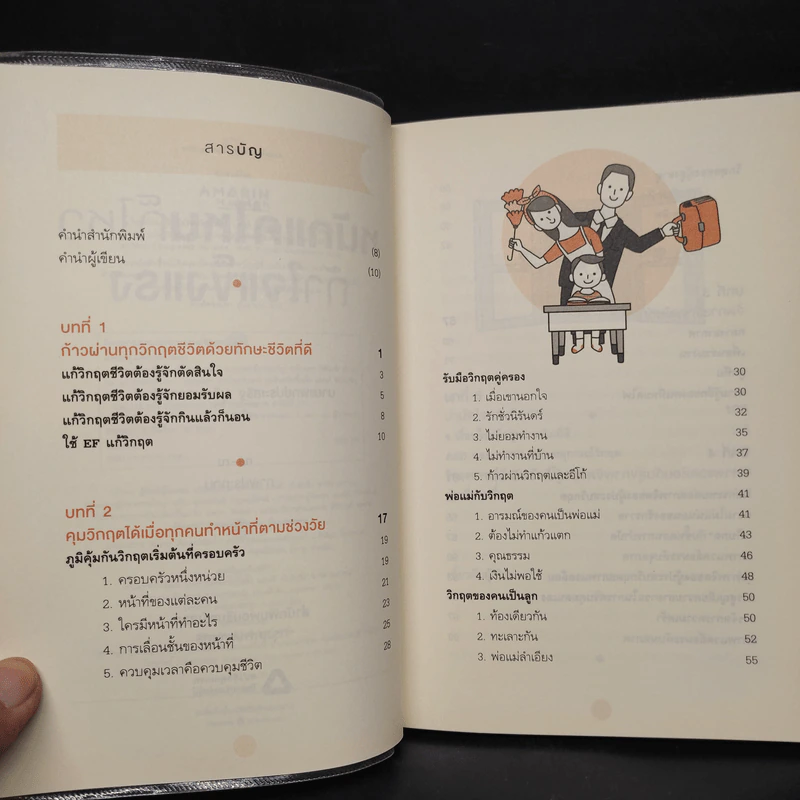 สารบัญ
คำนำสำนักพิมพ์ (8)
คำนำผู้เขียน (10)
บทที่ 1
ก้าวผ่านทุกวิกฤตชีวิตด้วยทักษะชีวิตที่ดี 1
แก้วิกฤตชีวิตต้องรู้จักตัดสินใจ 3
แก้วิกฤตชีวิตต้องรู้จักยอมรับผล 5
แก้วิกฤตชีวิตต้องรู้จักกินแล้วก็นอน 8
ใช้ EF แก้วิกฤต 10
บทที่ 2
คุมวิกฤตได้เมื่อทุกคนทำหน้าที่ตามช่วงวัย 17
ภูมิคุ้มกันวิกฤตเริ่มต้นที่ครอบครัว 19
1. ครอบครัวหนึ่งหน่วย 19
2. หน้าที่ของแต่ละคน 21
3. ใครมีหน้าที่ทำอะไร 23
4. การเลื่อนชั้นของหน้าที่ 25
5. ควบคุมเวลาคือควบคุมชีวิต 28
รับมือวิกฤตคู่ครอง 30
1. เมื่อเขานอกใจ 30
2. รักชั่วนิรันดร์ 32
3. ไม่ยอมทำงาน 35
4. ไม่ทำงานที่บ้าน 37
5. ก้าวผ่านวิกฤตและอีโก้ 39
พ่อแม่กับวิกฤต 41
1. อารมณ์ของคนเป็นพ่อแม่ 41
2. ต้องไม่ทำแก้วแตก 43
3. คุณธรรม 46
4. เงินไม่พอใช้ 48
วิกฤตของคนเป็นลูก 50
1. ท้องเดียวกัน 50
2. ทะเลาะกัน 52
3. พ่อแม่ลำเอียง 55